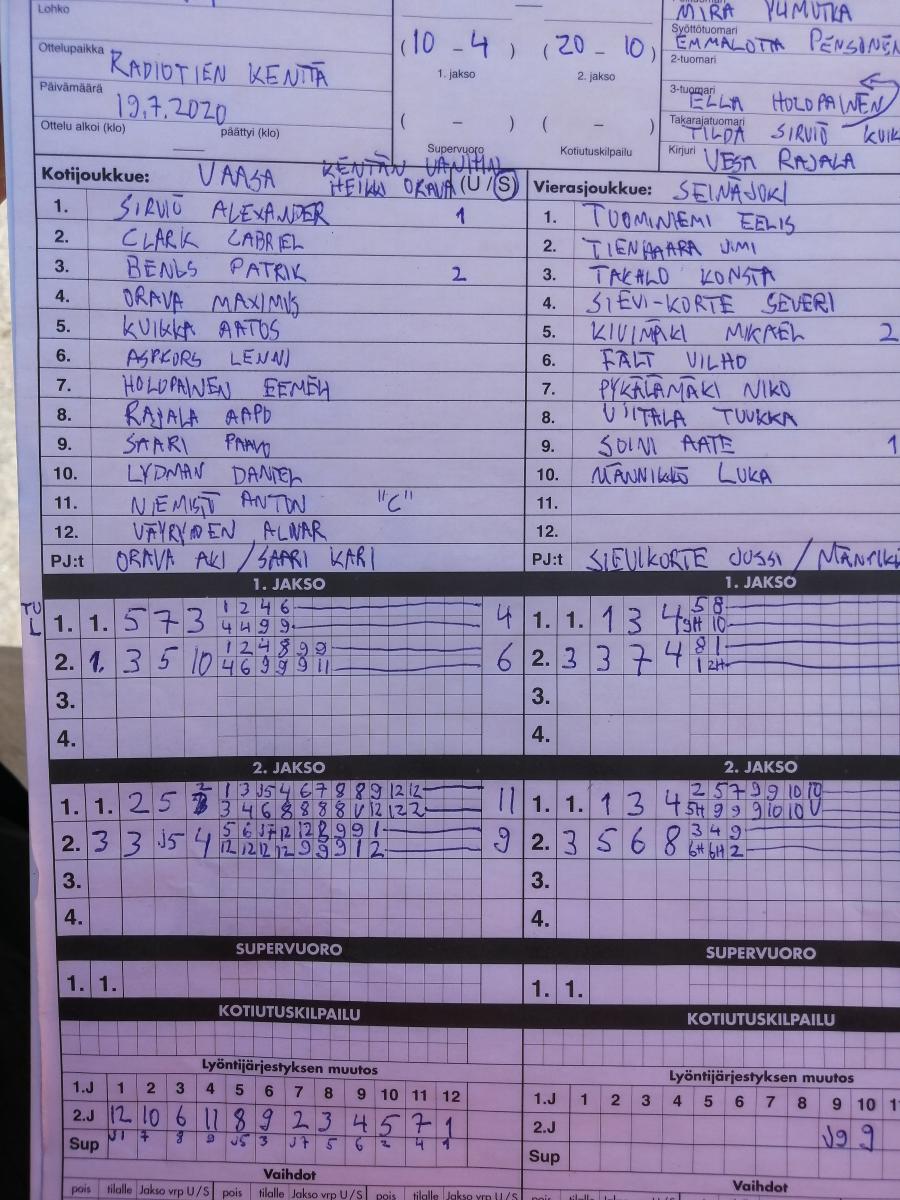 Lohko
MIRA
Syöttötuomari
EMMALOTTA PENSONEN
Ottelupaikka RADIOTIEN KENTTÄ
(10 - 4) (20 - 10)
1. jakso 2. jakso
2-tuomari
3-tuomari
ELLA HOLOPAINEN
Päivämäärä 19.7.2020
Takarajatuomari
TILDA SIRVIÖ
Ottelu alkoi (klo) päättyi (klo)
( - ) ( - )
Supervuoro Kotiutuskilpailu
Kirjuri VESA RAJALA
Kotijoukkue: VAASA KENTÄN VANHIN
HEIKKI ORAVA (U / S)
Vierasjoukkue: SEINÄJOKI
1. SIRVIÖ ALEXANDER 1
2. CLARK GABRIEL
3. BENGS PATRIK 2
4. ORAVA MAXIMUS
5. KUIKKA AATOS
6. ASPFORS LENNI
7. HOLOPAINEN EEMELI
8. RAJALA AAPO
9. SAARI PAAVO
10. LYDMAN DANIEL
11. NIEMISTÖ ANTON "C"
12. VÄYRYNEN ALVAR
PJ:t ORAVA AKI / SAARI KARI
1. TUOMINIEMI EELIS
2. TIENHAARA JIMI
3. TAKALO KONSTA
4. SIEVI-KORTE SEVERI
5. KIVIMÄKI MIKAEL 2
6. FÄLT VILHO
7. PYKÄLÄMÄKI NIKO
8. VIITALA TUUKKA
9. SOINI AATE 1
10. MÄNNIKKÖ LUKA
11.
12.
PJ:t SIEVIKORTE JUSSI /
1. JAKSO
TU
L
1. 1. 5 7 3 1 2 4 6 4
4 4 9 9
2. 1. 3 5 10 1 2 4 8 9 9 6
4 6 9 9 9 11
3.
4.
1. JAKSO
1. 1. 1 3 4 5 8
9H 10
2. 3 3 7 4 8 1
1 2H
3.
4.
2. JAKSO
1. 1. 2 5 2 1 3 J5 4 6 7 8 8 9 12 12 11
3 4 6 8 8 8 8 V 12 12 2
2. 3 3 J5 4 5 6 J7 12 12 8 9 9 1 9
12 12 12 12 9 9 9 1 2
3.
4.
2. JAKSO
1. 1. 1 3 4 2 5 7 9 9 10 10
5H 9 9 9 10 10 V
2. 3 5 6 8 3 4 9
6H 6H 2
3.
4.
SUPERVUORO
1. 1.
SUPERVUORO
1. 1.
KOTIUTUSKILPAILU
KOTIUTUSKILPAILU
Lyöntijärjestyksen muutos
1.J 1 2 3 4 5 6 7 8 9 10 11 12
2.J 12 10 6 11 8 9 2 3 4 5 7 1
Sup J1 7 8 9 J5 3 J7 5 6 2 4 1
Lyöntijärjestyksen muutos
1.J 1 2 3 4 5 6 7 8 9 10
2.J J9 9
Sup
Vaihdot
pois tilalle Jakso vrp U/S pois tilalle Jakso vrp U/S pois tilalle Jakso vrp U/S
Vaihdot
pois tilalle Jakso vrp U/S pois tilalle Jakso vrp U/S